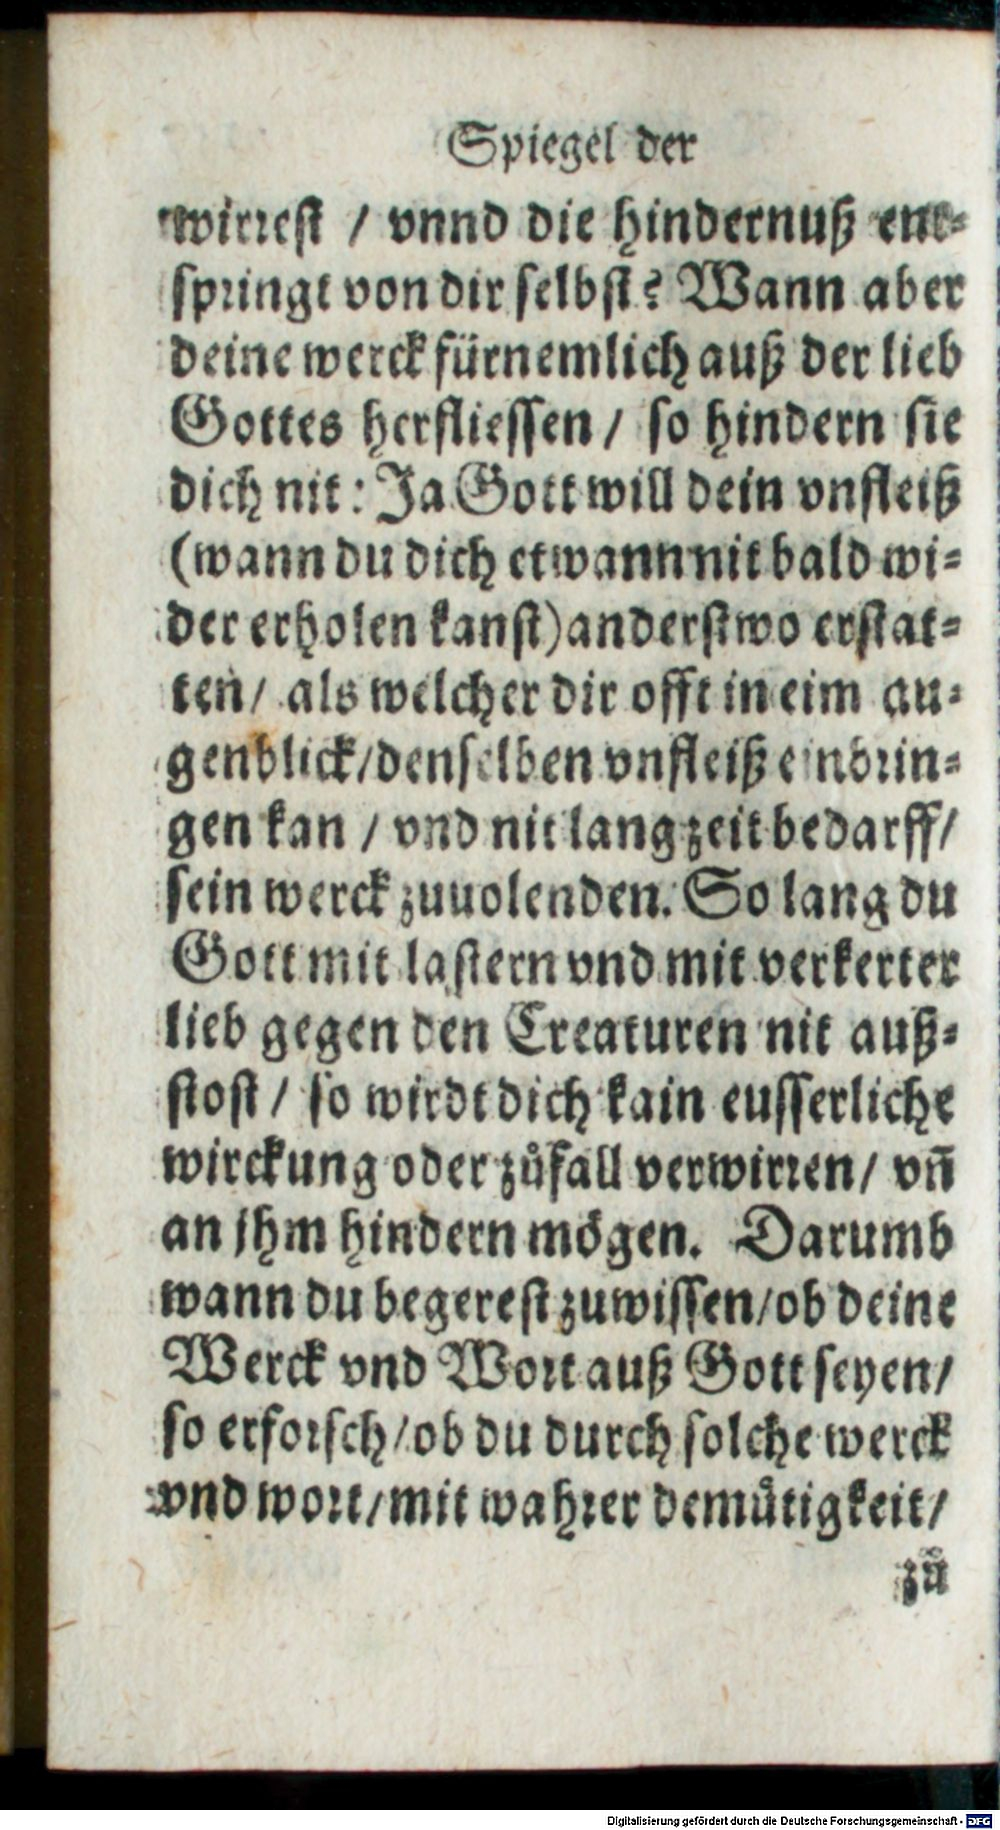 Spiegel der
wirrest / vnnd die hindernuß ent-
springt von dir selbst? Wann aber
deine werck fürnemlich auß der lieb
Gottes herfliessen / so hindern sie
dich nit: Ja Gott will dein vnfleiß
(wann du dich etwann nit bald wi-
der erholen kanst) anderstwo erstat-
ten / als welcher dir offt in eim au-
genblick / denselben vnfleiß einbrin-
gen kan / vnd nit lang zeit bedarff /
sein werck zuuolenden. So lang du
Gott mit lastern vnd mit verkerter
lieb gegen den Creaturen nit auß-
stost / so wirdt dich kain eusserliche
wirckung oder zůfall verwirren / vn̄
an jhm hindern mögen. Darumb
wann du begerest zuwissen / ob deine
Werck vnd Wort auß Gott seyen /
so erforsch / ob du durch solche werck
vnd wort / mit wahrer demůtigkeit /
zů
Digitalisierung gefördert durch die Deutsche Forschungsgemeinschaft - DFG